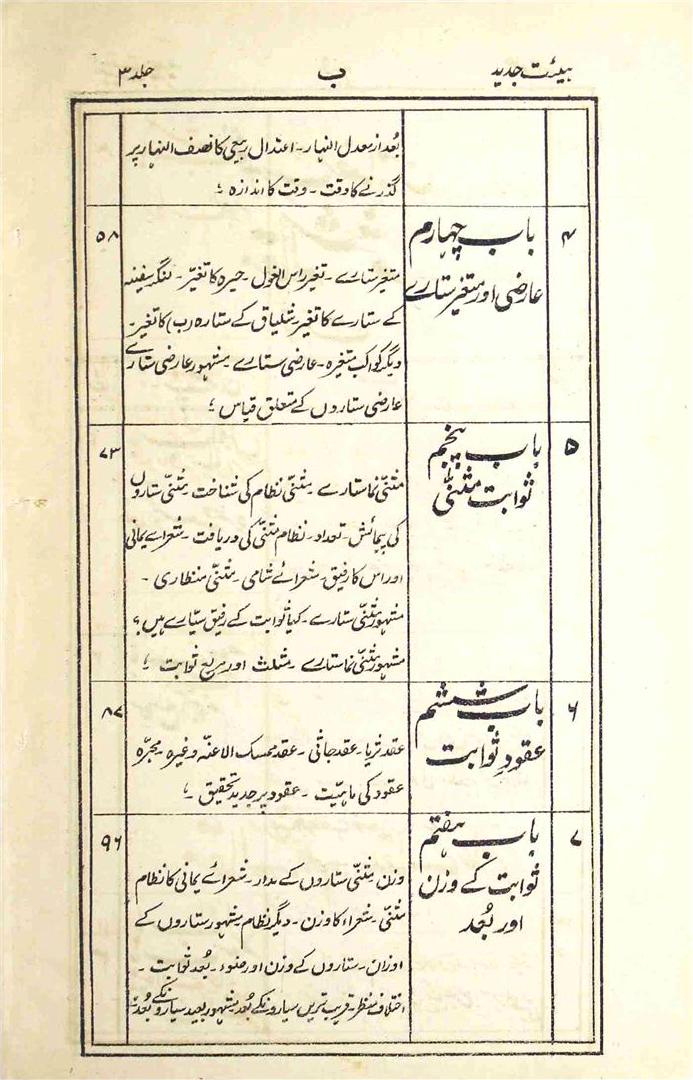 ہیئت جدید ب جلد ۳
بُعد از معدل النہار ۔ اعتدال ربیعی کا نصف النہار پر
گذرنے کا وقت ۔ وقت کا اندازہ ؛
۴ باب چہارم ۵۸
عارضی اور متغیر ستارے
متغیر ستارے ۔ تغیر راس الغول ۔ حیرہ کا تغیّر ۔ لنگر سفینہ
کے ستارے کا تغیر ۔ شلیاق کے ستارہ (ب) کا تغیر ۔
دیگر کواکب متغیرہ ۔ عارضی ستارے ۔ مشہور عارضی ستارے
عارضی ستاروں کے متعلق قیاس ؛
۵ باب پنجم ۷۳
ثوابت مثنیٰ
مثنّی نما ستارے ۔ مثنّی نظام کی شناخت ۔ مثنّی ستاروں
کی پیمائش ۔ تعداد ۔ نظام مثنّی کی دریافت ۔ شعرائے یمانی
اور اس کا رفیق ۔ شعرائے شامی ۔ مثنّی منظاری ۔
مشہور مثنّی ستارے ۔ کیا ثوابت کے رفیق سیّارے ہیں ؟
مشہور مثنّی نما ستارے ۔ مثلث اور مربع ثوابت ؛
۶ باب ششم ۸۷
عقودِ ثوابت
عقد ثریا ۔ عقد جاثی ۔ عقد ممسک الاعنّہ وغیرہ ۔ مجرّہ
عقود کی ماہیّت ۔ عقود پر جدید تحقیق ؛
۷ باب ہفتم ۹۶
ثوابت کے وزن
اور بُعد
وزن ۔ مثنّی ستاروں کے مدار ۔ شعرائے یمانی کا نظام
مثنّی ۔ شعراء کا وزن ۔ دیگر نظام ۔ مشہور ستاروں کے
اوزان ۔ ستاروں کے وزن اور ضوء ۔ بُعد ثوابت ۔
اختلاف منظر ۔ قریب ترین سیاروں کے بُعد ۔ مشہور بعید سیاروں کے بُعد ۔